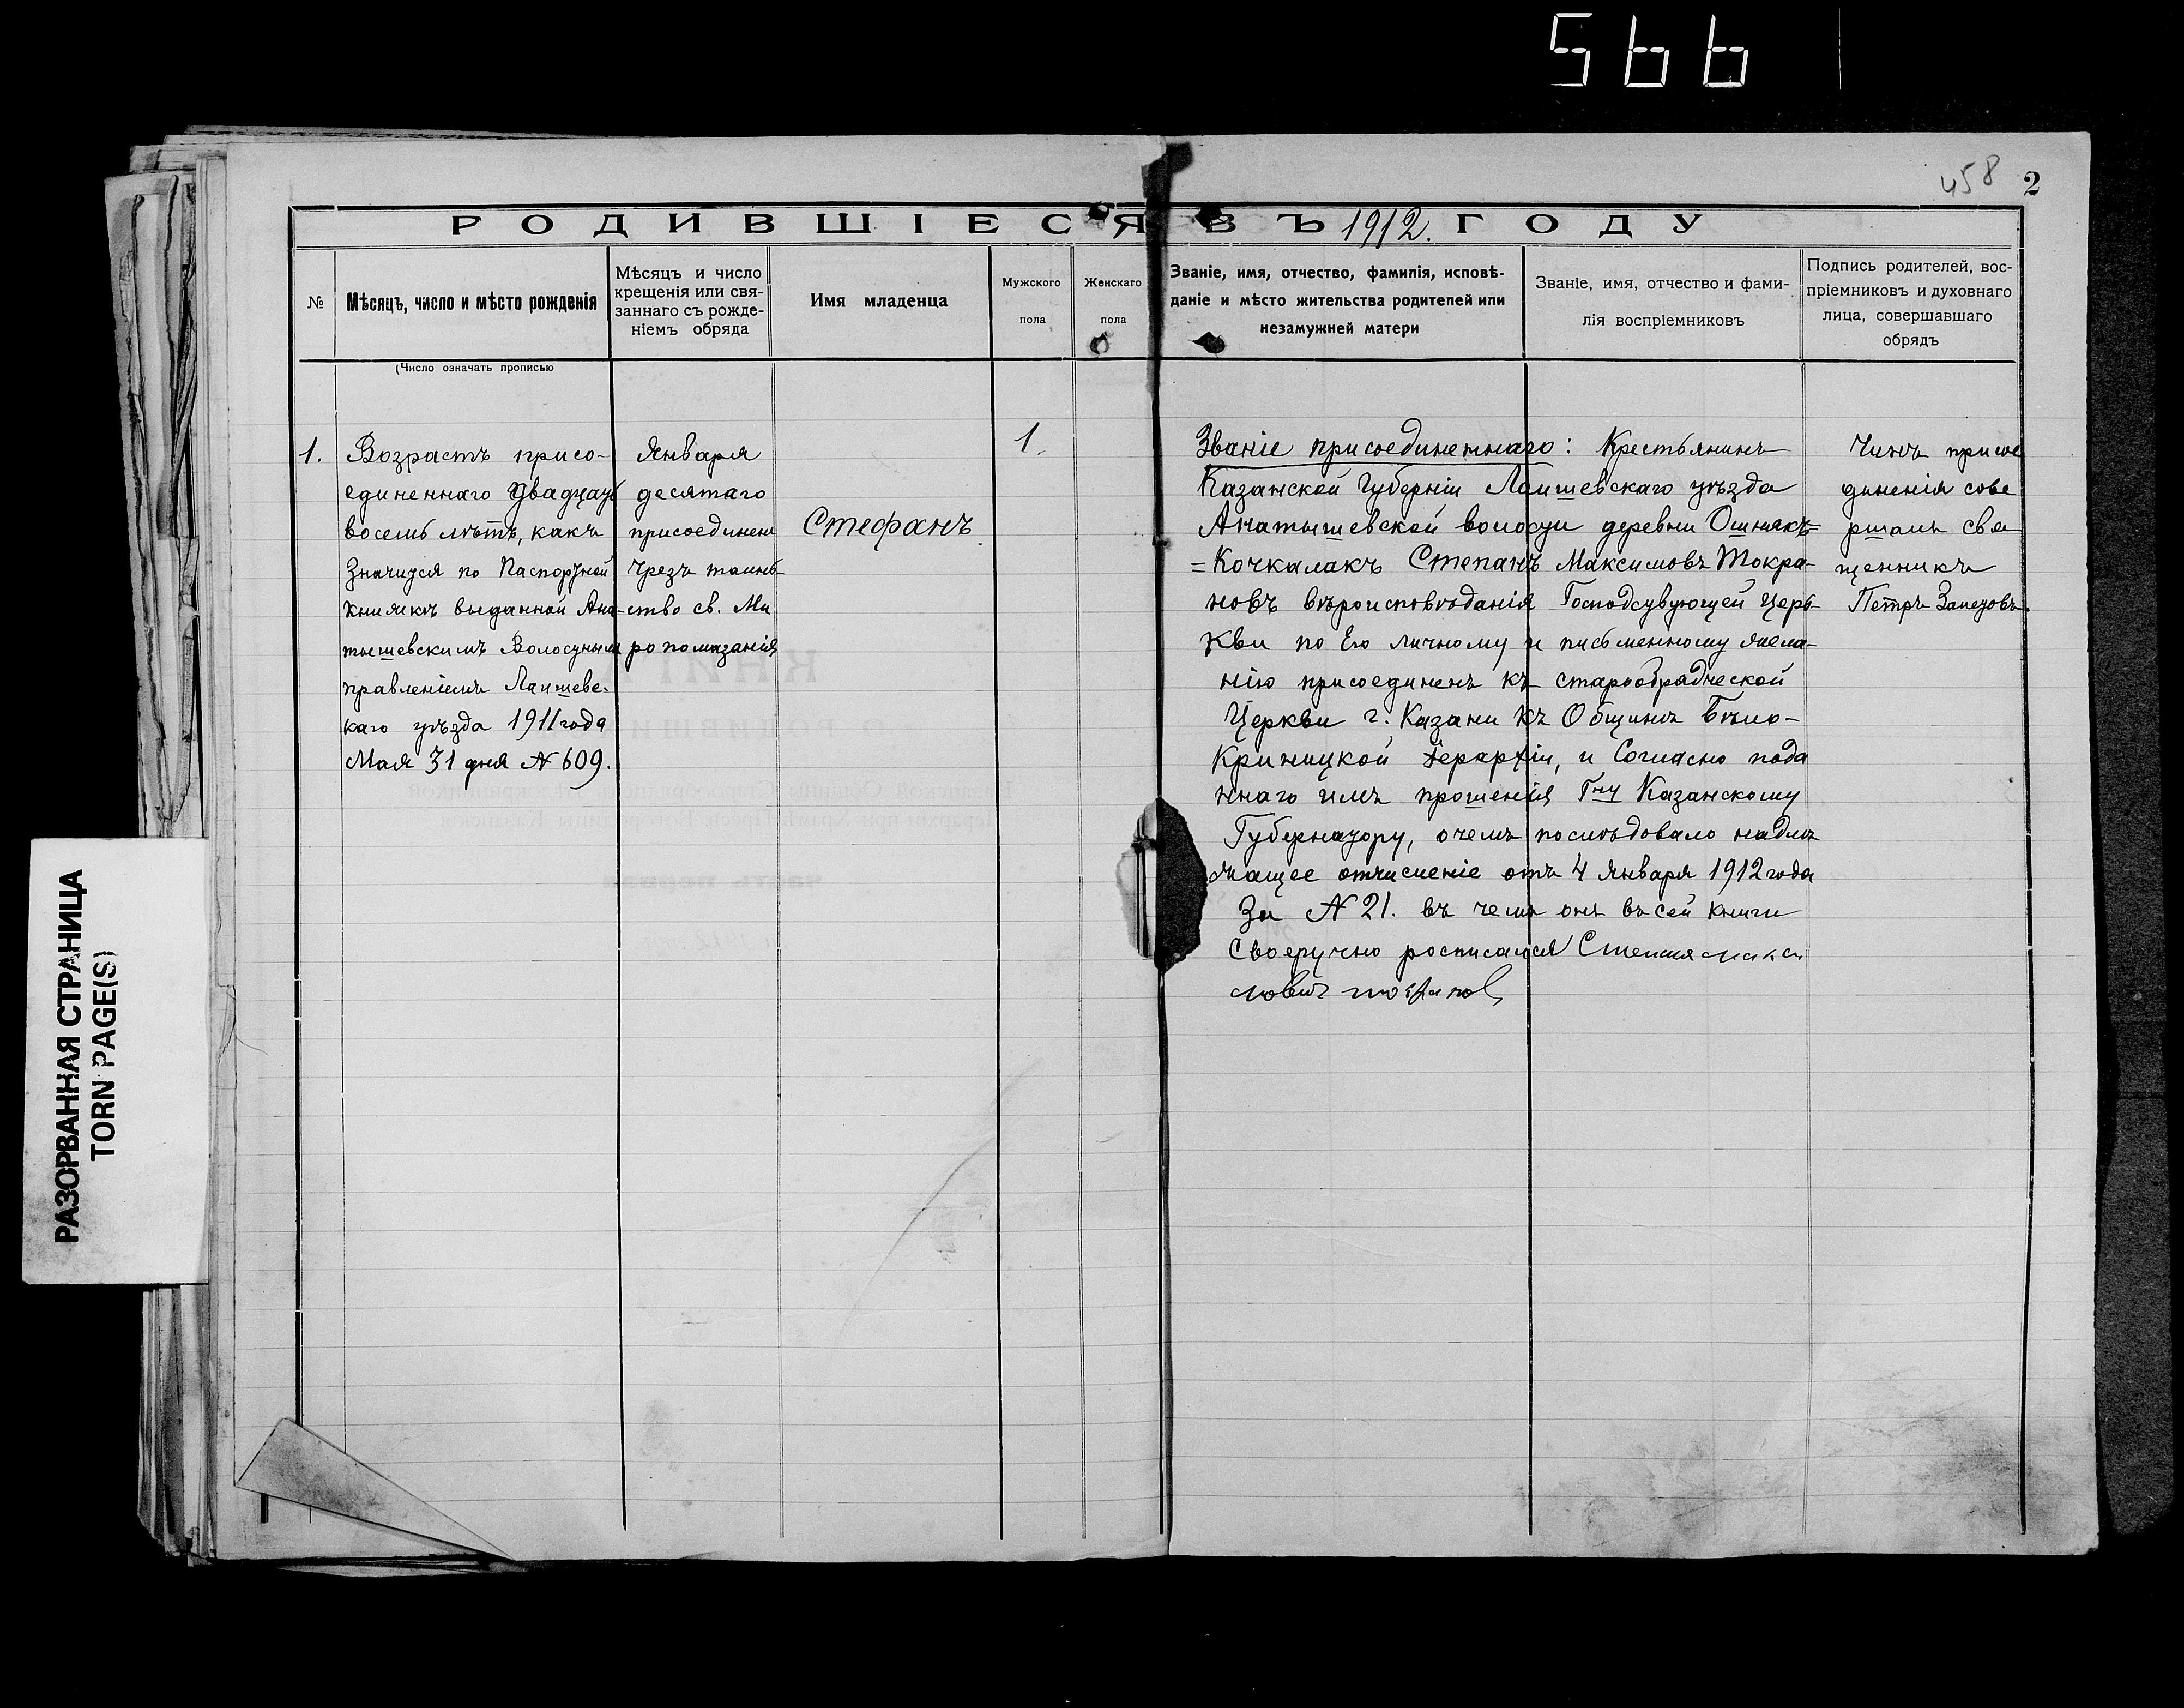 566
458 2
РОДИВШІЕСЯ ВЪ 1912. ГОДУ
№
Мѣсяцъ, число и мѣсто рожденія
Мѣсяцъ и число
крещенія или свя-
заннаго съ рожде-
ніемъ обряда
Имя младенца
Мужского
пола
Женскаго
пола
Званіе, имя, отчество, фамилія, исповѣ-
даніе и мѣсто жительства родителей или
незамужней матери
Званіе, имя, отчество и фами-
лія воспріемниковъ
Подпись родителей, вос-
пріемниковъ и духовнаго
лица, совершавшаго
обрядъ
(Число означать прописью
1.
Возрастъ присо-
единеннаго двадцать
восемь лѣтъ, какъ
значится по Паспортной
книжкѣ выданной Ана-
тышевскимъ Волостнымъ
правленіемъ Лаишевс-
каго уѣзда 1911 года
Мая 31 дня № 609.
Января
десятаго
присоединенъ
чрезъ таинь-
ство св. Ми
ропомазанія
Стефанъ
1.
Званіе присоединеннаго: Крестьянинъ
Казанской Губерніи Лаишевскаго уѣзда
Анатышевской волости деревни Ошнякъ=
=Кочкалакъ Степанъ Максимовъ Токра-
новъ вѣроисповѣданія Господствующей Церь-
кви по Его личному и письменному жела-
нію присоединенъ къ старообрядческой
Церкви г. Казани къ Общинѣ Бѣло-
Криницкой Іерархіи, и Согласно пода
ннаго имъ прошенія Гну Казанскому
Губернатору, очемъ послѣдовало надле
жащее отчисленіе отъ 4 Января 1912 года
За № 21. въ чемъ онъ въ сей книги
Своеручно росписался Степан макси
мович токранов
Чинъ присое
диненія сове
ршалъ свя
щенникъ
Петръ Залетовъ.
РАЗОРВАННАЯ СТРАНИЦА
TORN PAGE(S)